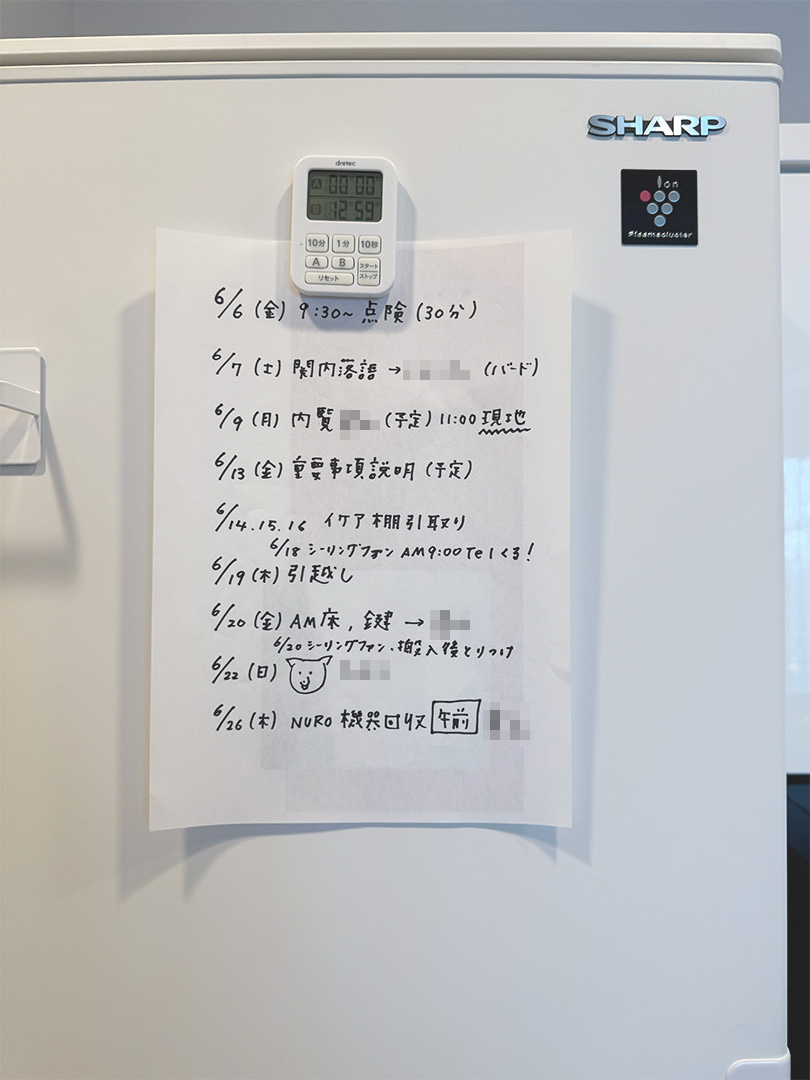 SHARP
Ion
Plasmacluster
dretec
A 00 00
B 12 59
10分 1分 10秒
A B スタート
リセット ストップ
6/6 (金) 9:30~ 点険 (30分)
6/7 (土) 関内落語 → (ハード)
6/9 (月) 内覧 (予定) 11:00 現地
6/13 (金) 重要事項説明 (予定)
6/14.15.16 イケア棚引取り
6/18 シーリングファン AM9:00 Telくる!
6/19 (木) 引越し
6/20 (金) AM床, 鍵 →
6/20 シーリングファン、搬入後とりつけ
6/22 (日)
6/26 (木) NURO 機器回収 午前